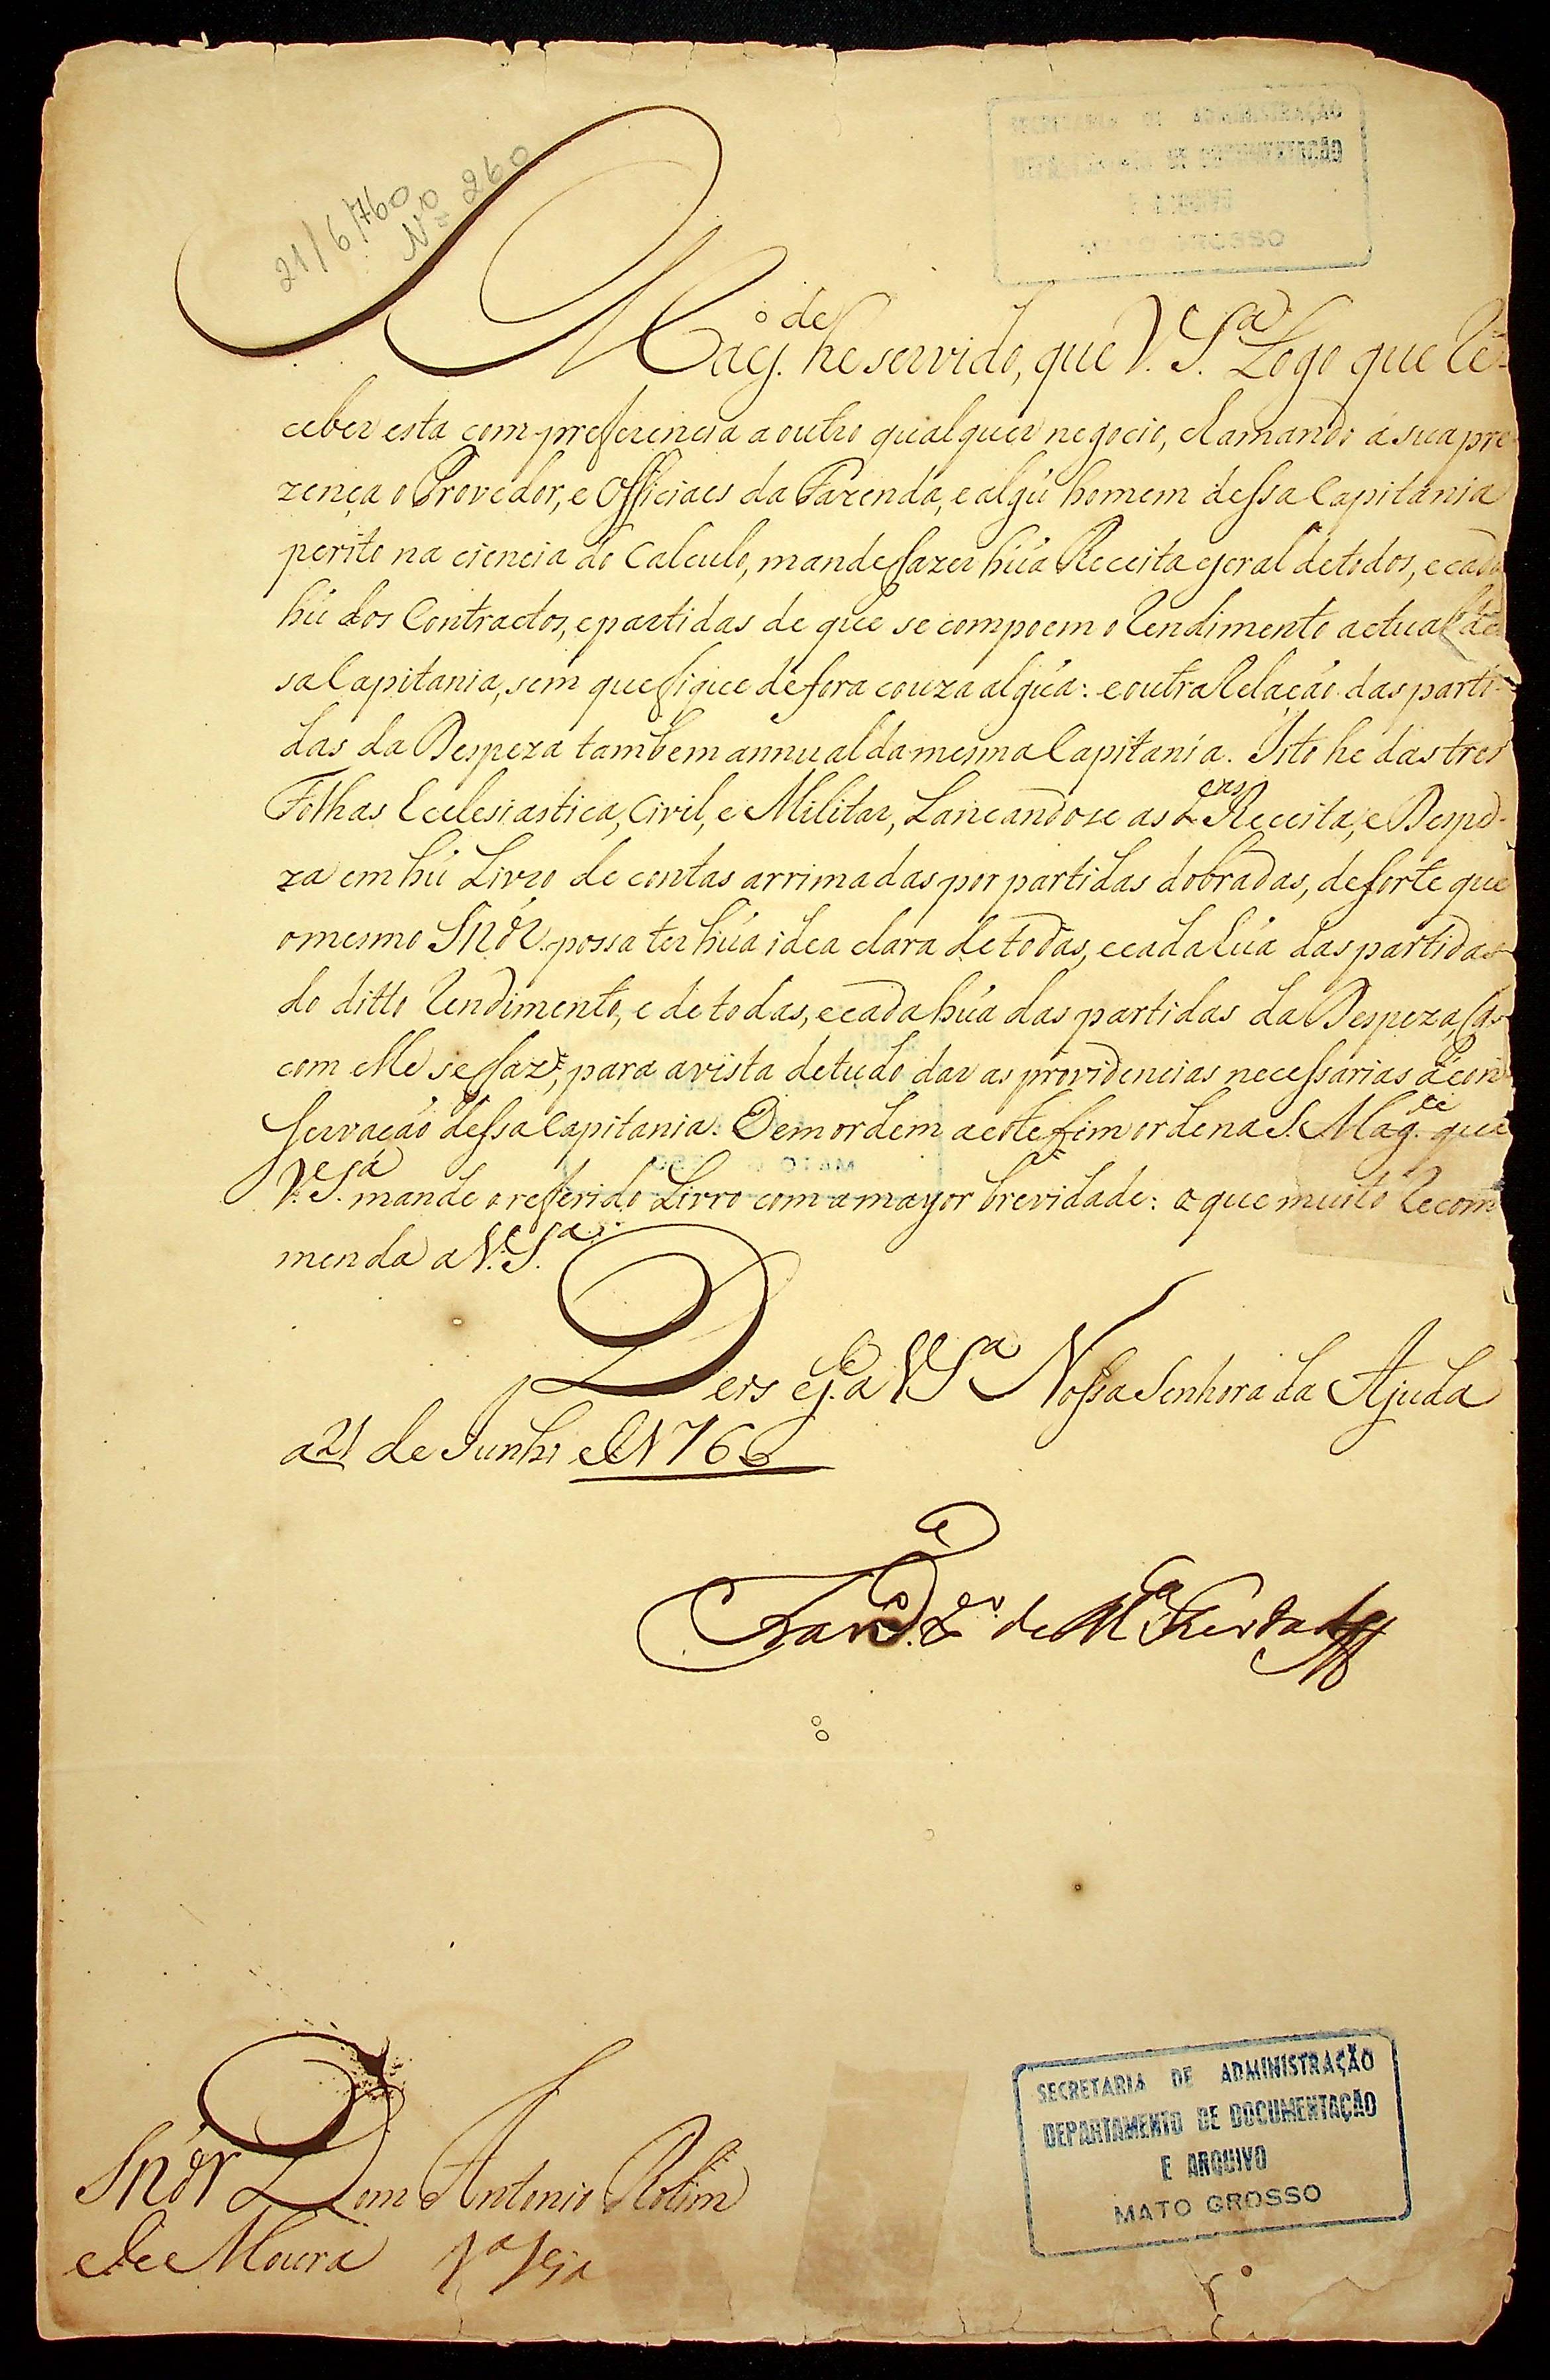 21/6/760
Nº 260
SECRETARIA DE ADMINISTRAÇÃO
DEPARTAMENTO DE DOCUMENTAÇÃO
E ARQUIVO
MATO GROSSO
S. Mag.de he servido, que V. S.a Logo que re-
ceber esta com preferencia a outro qualquer negocio, chamando á sua pre
zença o Provedor, e Officiaes da Fazenda, e algũ homem dessa Capitania
perito na ciencia do Calculo, mande fazer hũa Receita geral de todos, e cada
hũ dos Contractos, e partidas de que se compoem o rendimento actual des
sa Capitania, sem que fique de fora couza algũa: e outra relação das parti-
das da Despeza tambem annual da mesma Capitania. Isto he das tres
Folhas Ecclesiastica, Civil, e Militar, Lancandose as Receita, e Despe-
za em hũ Livro de contas arrimadas por partidas dobradas, de sorte que
o mesmo Snõr. possa ter hũa idea clara de todas, e cada hũa das partidas
do ditto rendimento, e de todas, e cada hũa das partidas da Despeza, q̃
com elle se faz, para a vista de tudo dar as providencias necessarias á con
servação dessa Capitania. Em ordem a este fim ordena S. Mag.de que
V. S.a mande o referido Livro com a mayor brevidade: o que muito recom
menda a V. S.a
Deos g.e a V S.a Nossa Senhora da Ajuda
a 21 de Junho de 1760
Fran.co X.er de M.ça Furtado
Snõr Dom Antonio Rolim
de Moura
SECRETARIA DE ADMINISTRAÇÃO
DEPARTAMENTO DE DOCUMENTAÇÃO
E ARQUIVO
MATO GROSSO